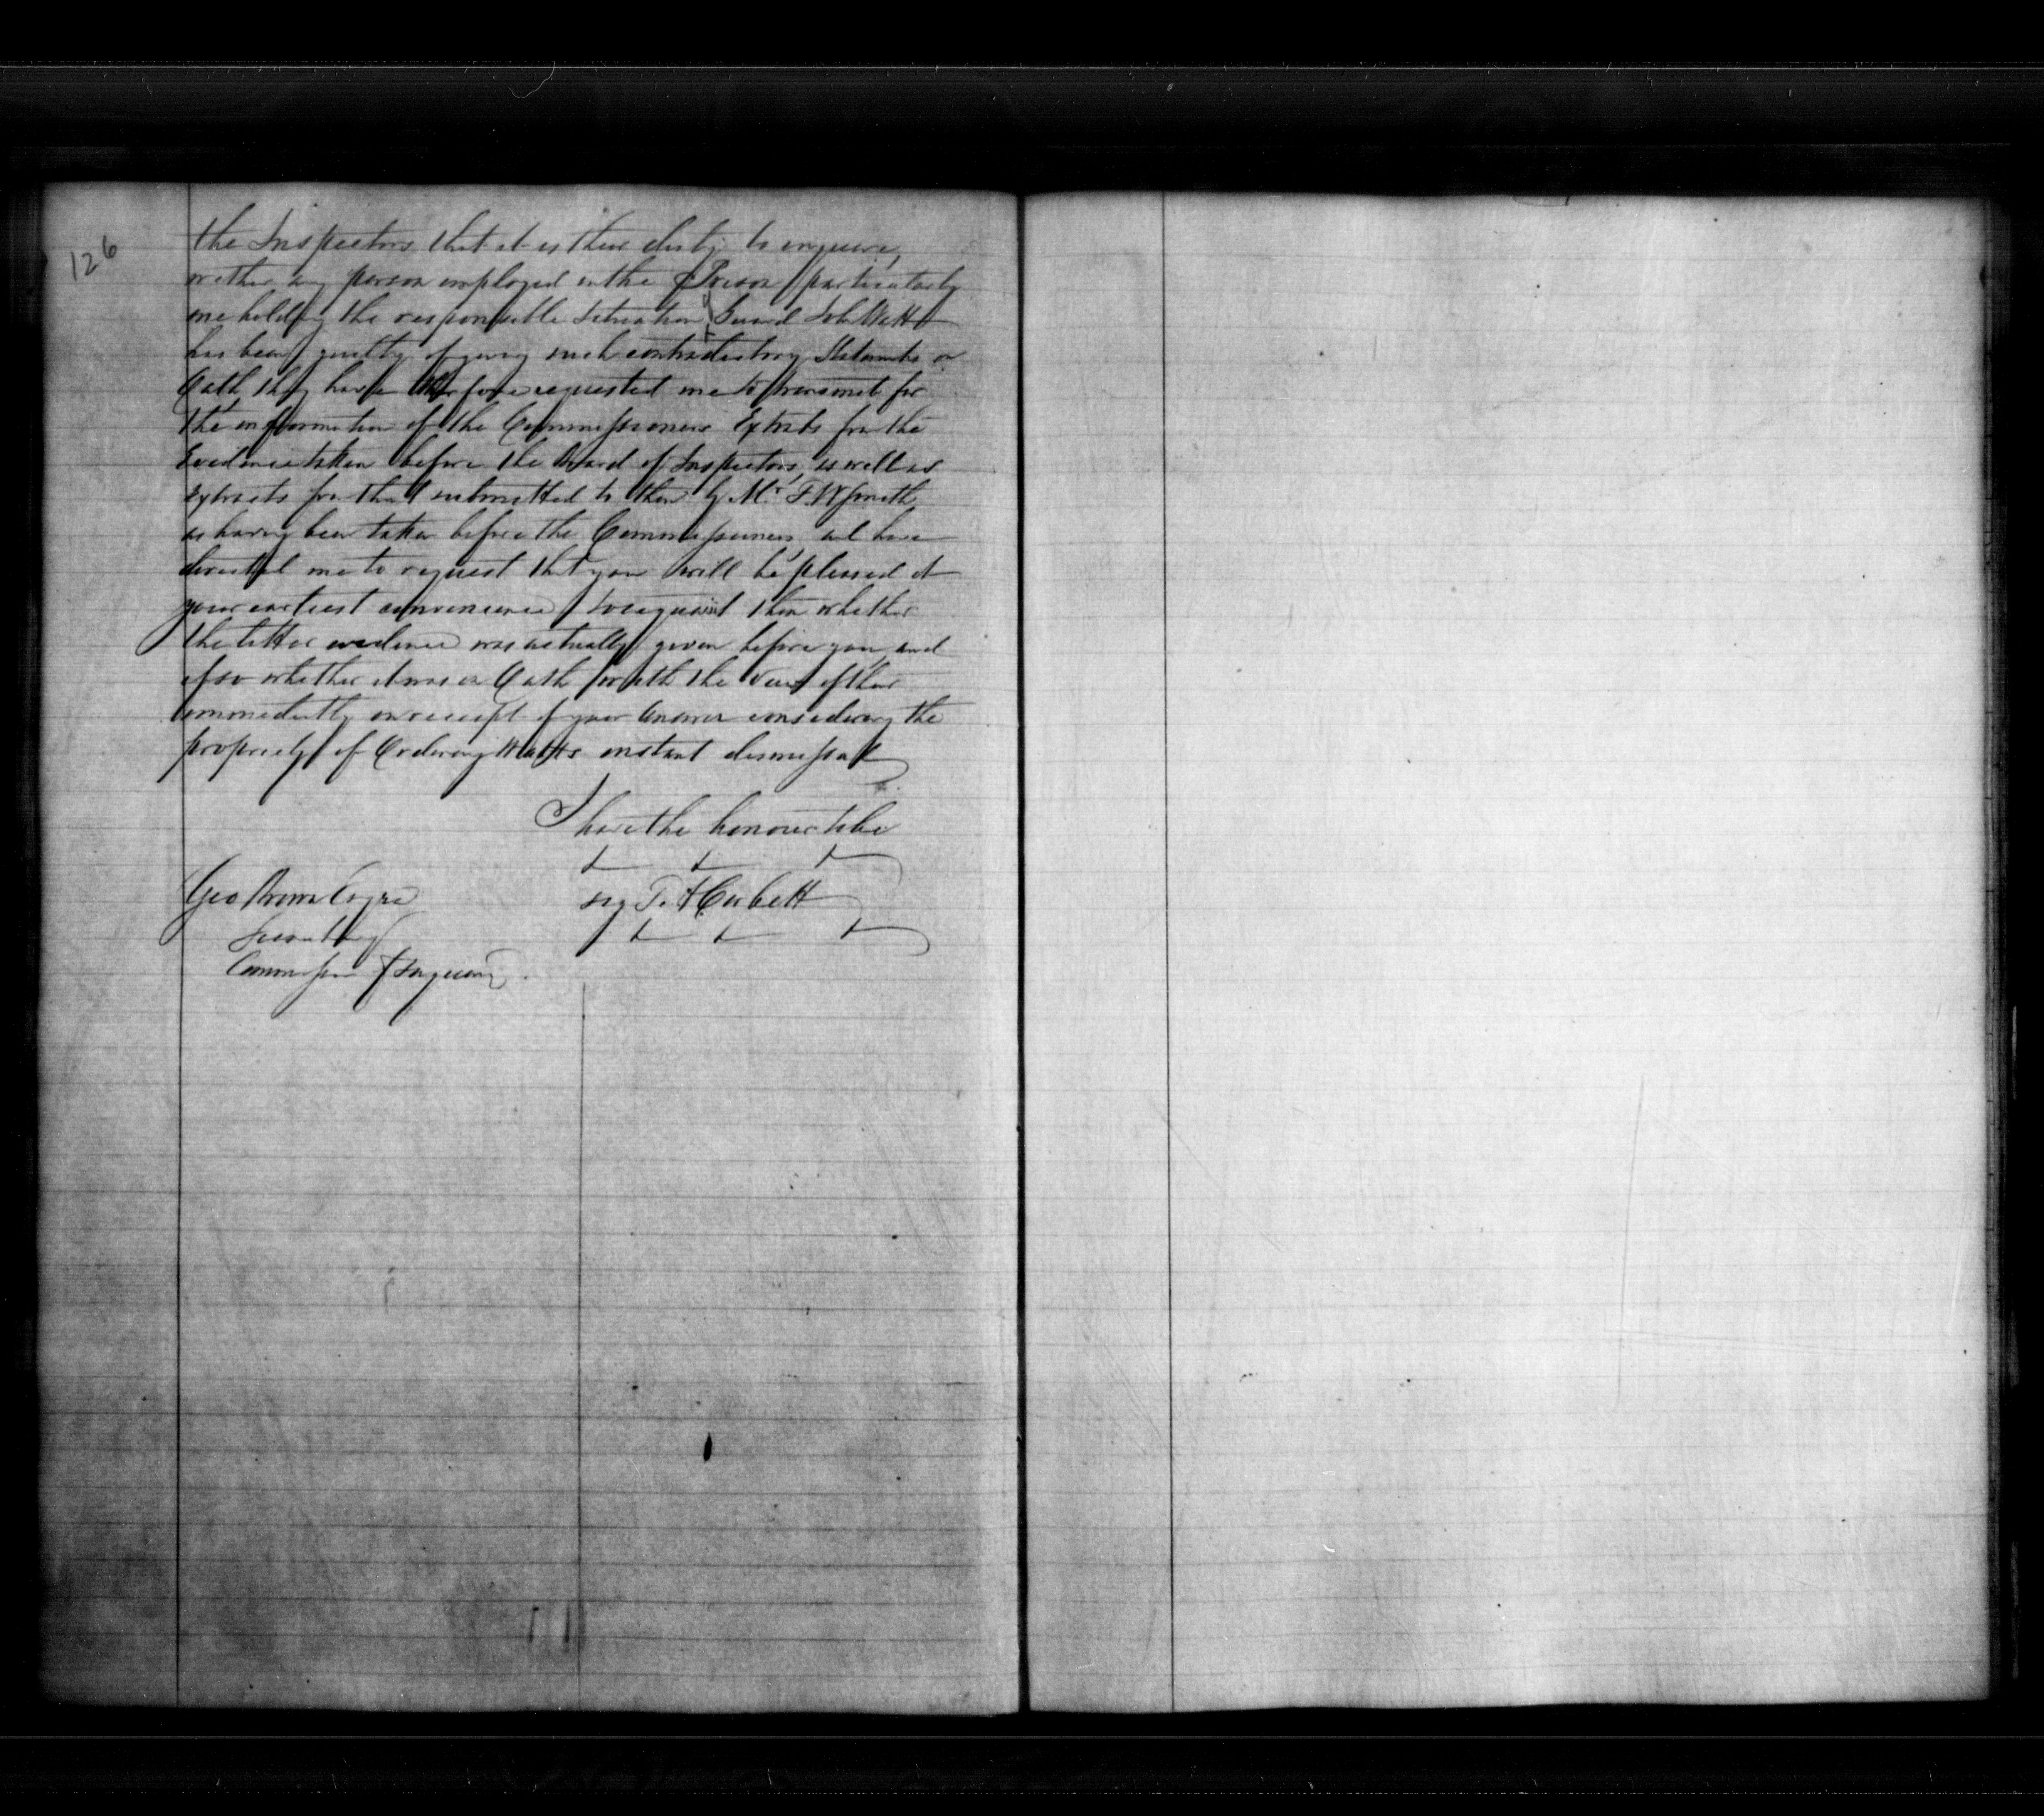 126
the Inspectors that it is their duty to enquire,
wether any person employed in the Prison particularly
one holding the responsible Situation of Guard John Watt
has been guilty of giving such contradictory Statements on
Oath, they have therefore requested me to transmit for
the information of the Commissioners Extrats from the
Evidence taken before the Board of Inspectors, as well as
extracts from that submitted to them by Mr F. W Smith
as having been taken before the Commissioners, and have
directed me to request that you will be pleased at
your earliest convenience to acquaint them whether
the latter evidence was actually given before you, and
if so whether it was on Oath with the view of their
immediately on receipt of your Answer considering the
propriety of Ordering Watts instant dismissal
I have the honour to be
sig T. A Corbett
Geo Brown Esqre
Secretary
Commission of Enquiry.